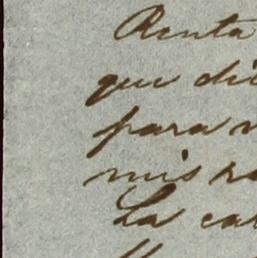 Renta
que di
para
mis
La ca